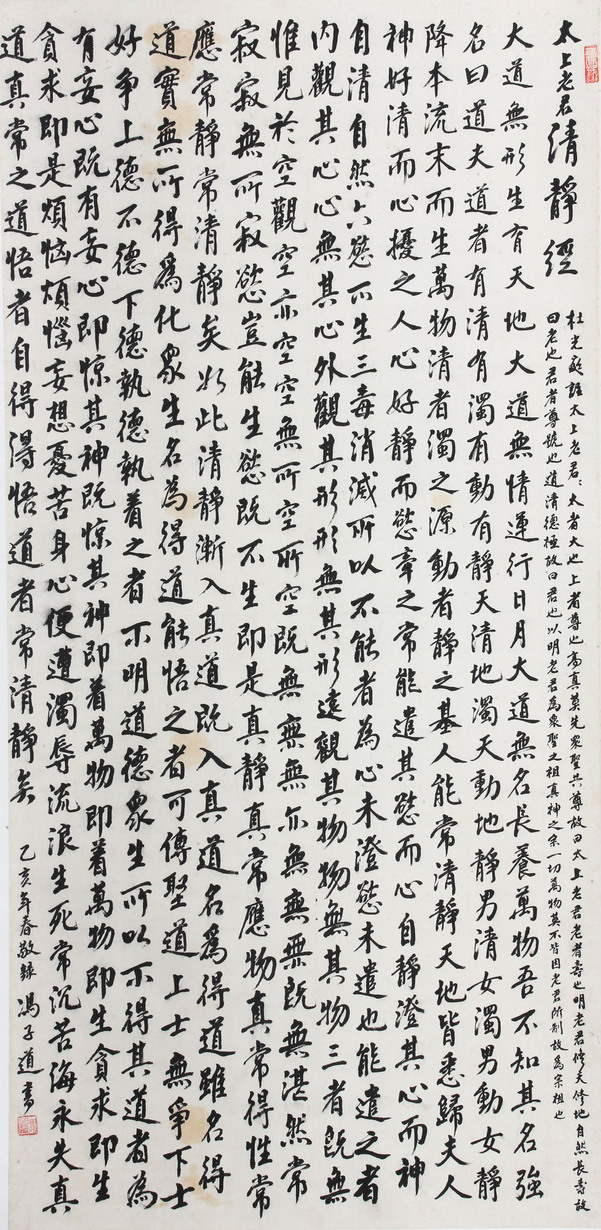 太上老君清靜經
杜光庭註太上老君:太者大也上者尊也高真莫先眾聖共尊故曰太上老君老者壽也明老君修天修地自然長壽故
曰老也君者尊號也道清德極故曰君也以明老君為眾聖之祖真神之宗一切萬物莫不皆因老君所制故為宗祖也
大道無形生育天地大道無情運行日月大道無名長養萬物吾不知其名強
名曰道夫道者有清有濁有動有靜天清地濁天動地靜男清女濁男動女靜
降本流末而生萬物清者濁之源動者靜之基人能常清靜天地皆悉歸夫人
神好清而心擾之人心好靜而慾牽之常能遣其慾而心自靜澄其心而神
自清自然六慾不生三毒消滅所以不能者為心未澄慾未遣也能遣之者
內觀其心心無其心外觀其形形無其形遠觀其物物無其物三者既無
惟見於空觀空亦空空無所空所空既無無無亦無無無既無湛然常
寂寂無所寂慾豈能生慾既不生即是真靜真常應物真常得性常
應常靜常清靜矣如此清靜漸入真道既入真道名為得道雖名得
道實無所得為化眾生名為得道能悟之者可傳聖道上士無爭下士
好爭上德不德下德執德執着之者不明道德眾生所以不得其道者為
有妄心既有妄心即惊其神既惊其神即着萬物即着萬物即生貪求即生
貪求即是煩惱煩惱妄想憂苦身心便遭濁辱流浪生死常沉苦海永失真
道真常之道悟者自得得悟道者常清靜矣 乙亥年春敬錄 馮子道書